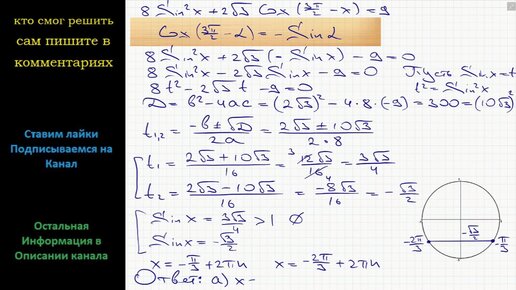 кто смог решить
сам пишите в
комментариях
Ставим лайки
Подписываемся на
Канал
Остальная
Информация в
Описании канала
8 Sin²x + 2√3 Cos(3π/2 − x) = 9
Cos(3π/2 − α) = − Sin α
8 Sin²x + 2√3 (− Sin x) − 9 = 0
8 Sin²x − 2√3 Sin x − 9 = 0 Пусть Sin x = t
8t² − 2√3 t − 9 = 0 t² = Sin²x
D = b² − 4ac = (2√3)² − 4·8·(−9) = 300 = (10√3)²
t₁,₂ = (−b ± √D)/2a = (2√3 ± 10√3)/(2·8)
t₁ = (2√3 + 10√3)/16 = 12√3/16 = 3√3/4
t₂ = (2√3 − 10√3)/16 = −8√3/16 = −√3/2
Sin x = 3√3/4 > 1 ∅
Sin x = −√3/2
−2π/3 −√3/2 −π/3
x = −π/3 + 2πn x = −2π/3 + 2πn
Ответ: а) x −